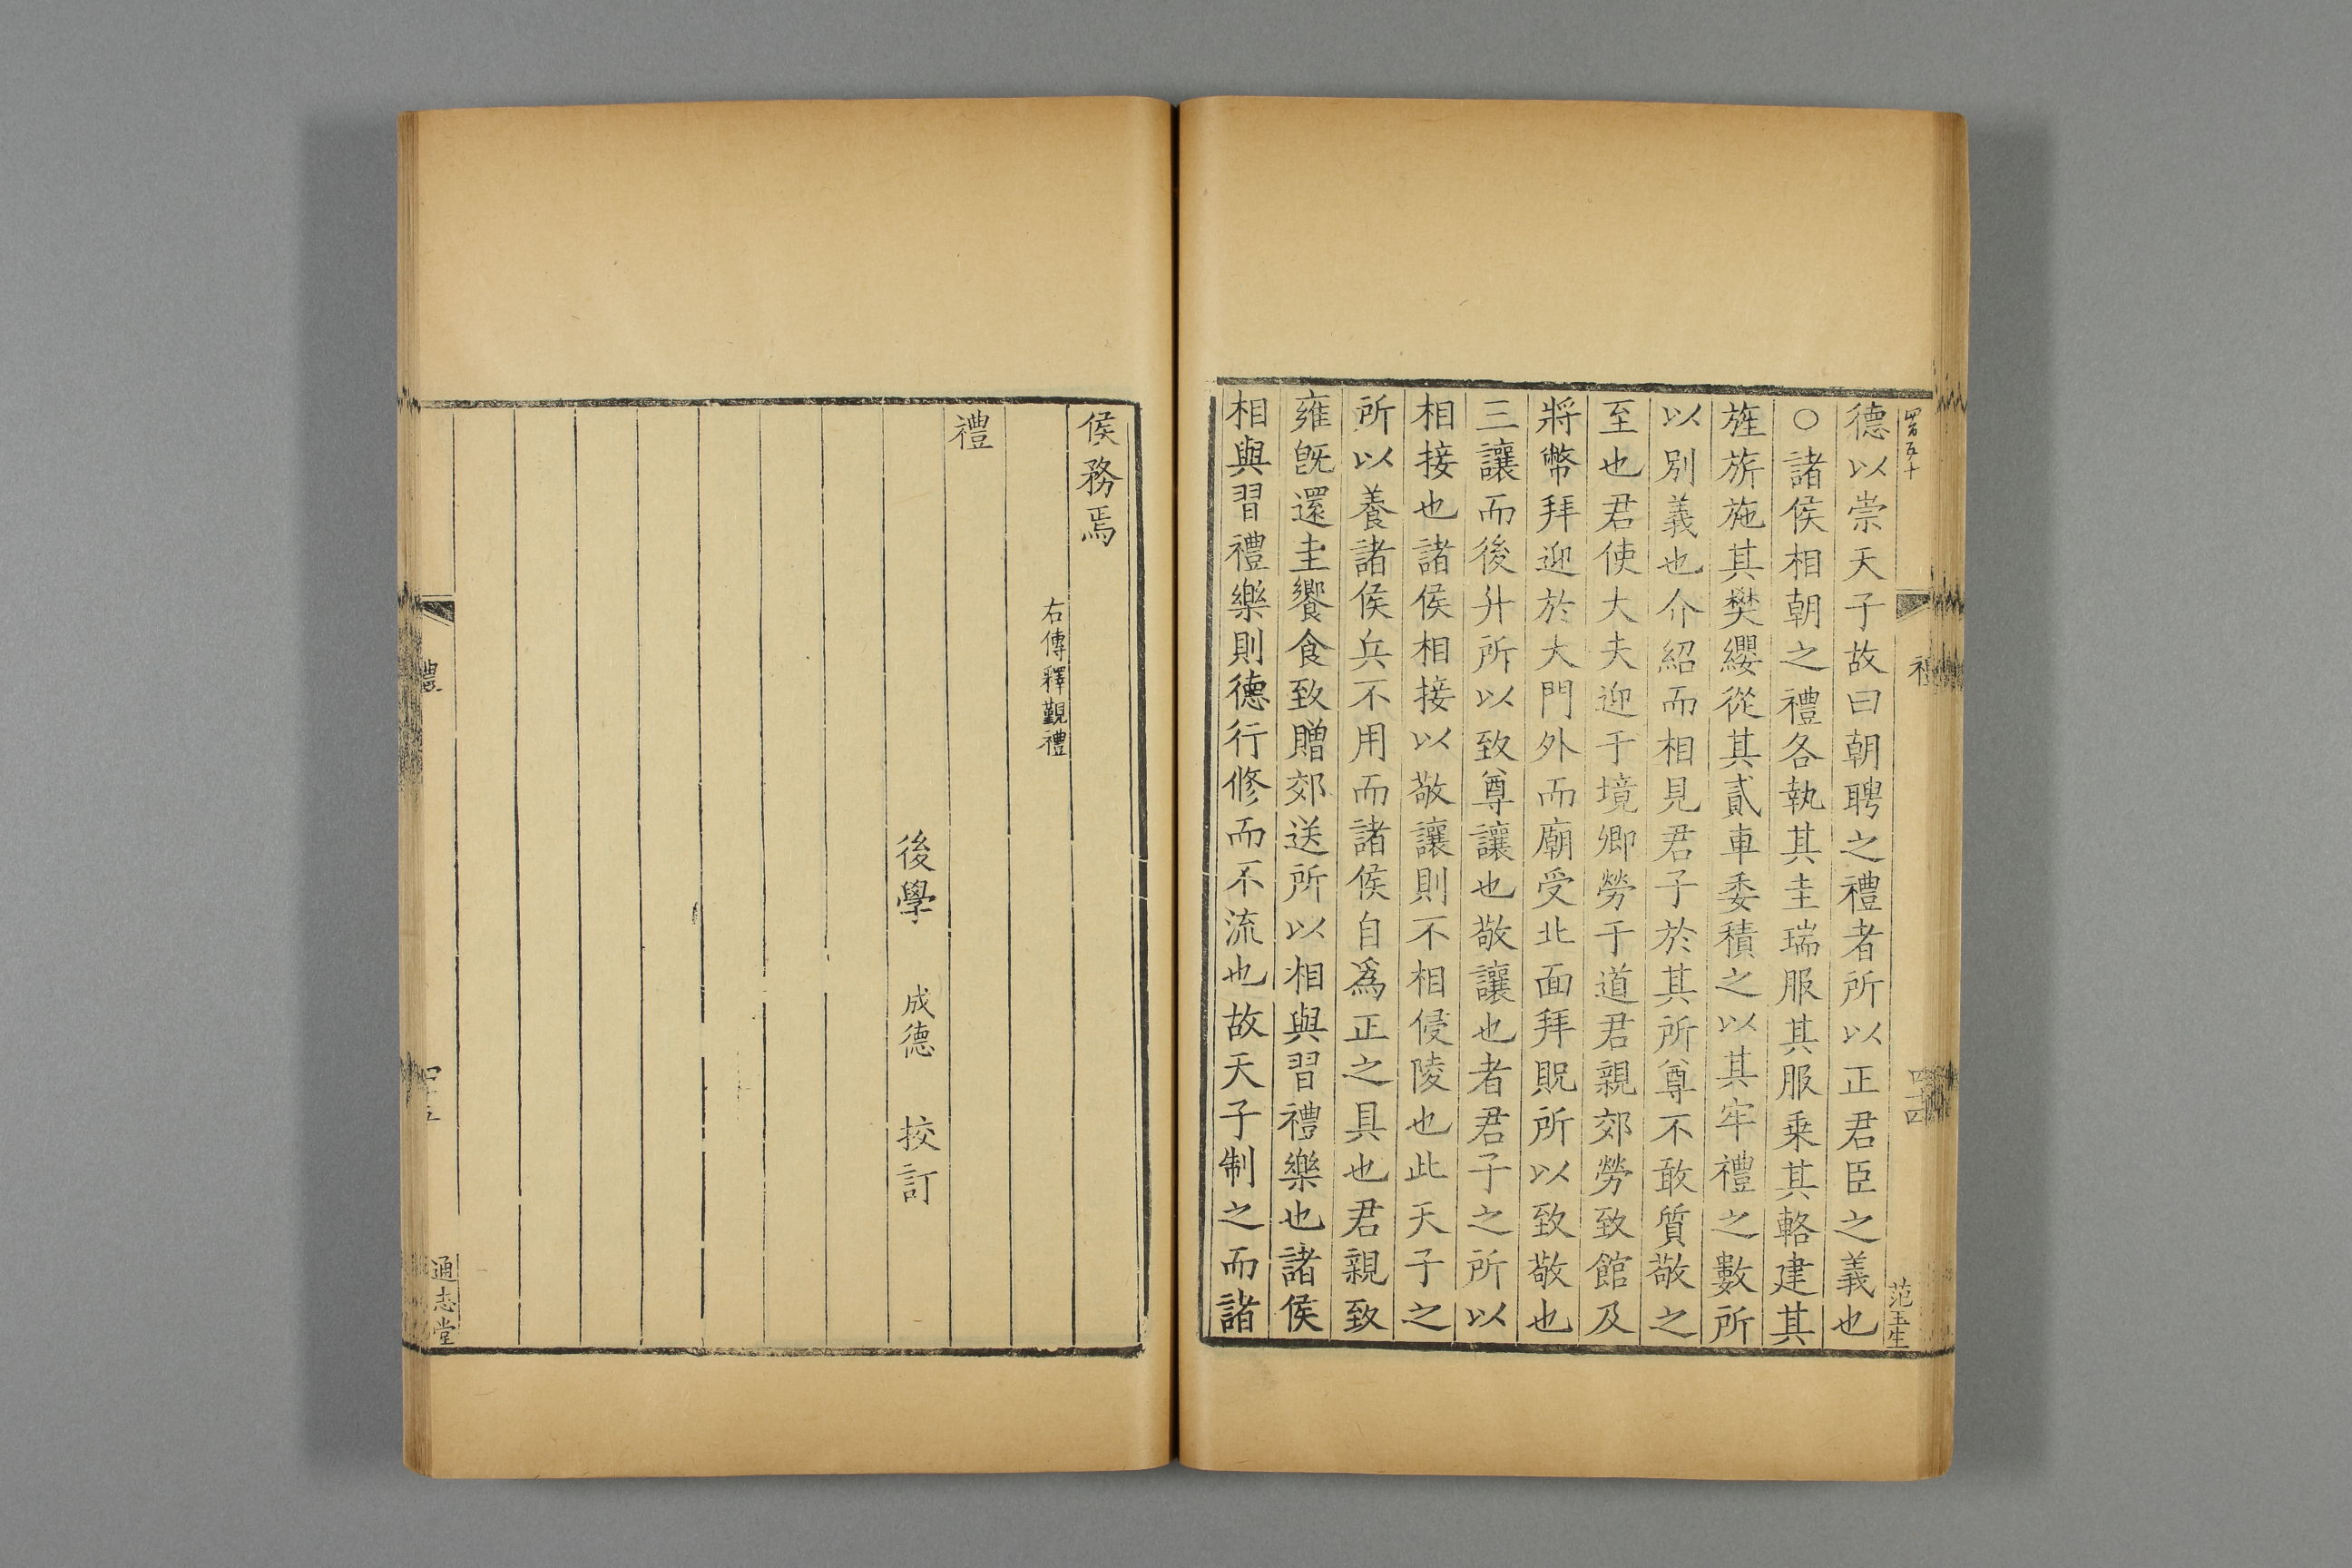 德以崇天子故曰朝聘之禮者所以正君臣之義也
○諸侯相朝之禮各執其圭瑞服其服乗其輅建其
旌旂施其樊纓從其貳車委積之以其牢禮之數所
以別義也介紹而相見君子於其所尊不敢質敬之
至也君使大夫迎于境卿勞于道君親郊勞致館及
將幣拜迎於大門外而廟受北面拜貺所以致敬也
三讓而後升所以致尊讓也敬讓也者君子之所以
相接也諸侯相接以敬讓則不相侵陵也此天子之
所以養諸侯兵不用而諸侯自爲正之具也君親致
雍旣還圭饗食致贈郊送所以相與習禮樂也諸侯
相與習禮樂則德行修而不流也故天子制之而諸
范玉生
侯務焉
右傳釋覲禮
禮
後學 成德 挍訂
禮
四十五
通志堂